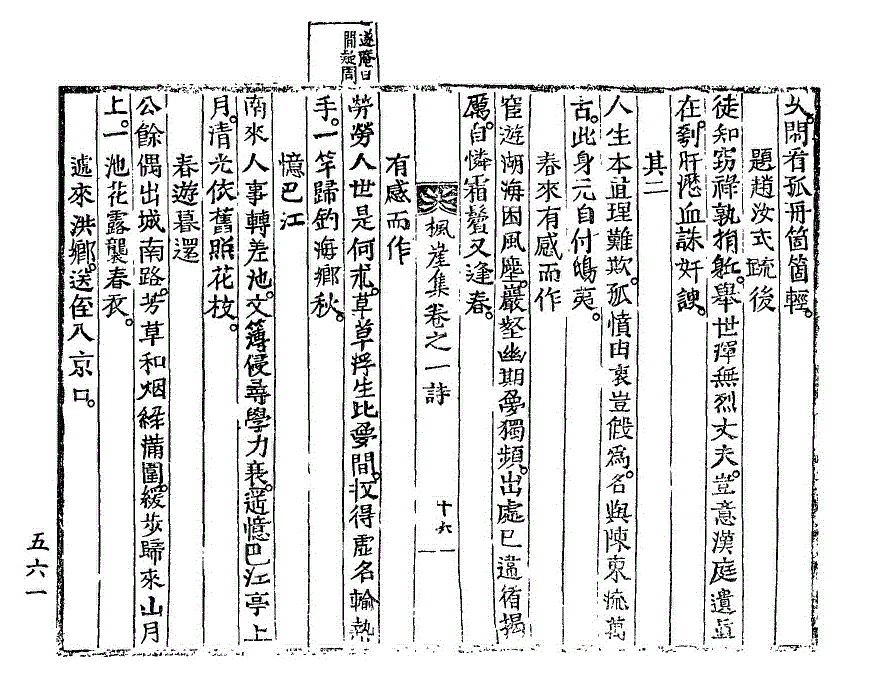 久。閒看孤舟箇箇輕。
題趙汝式疏後
徒知竊祿孰捐軀。舉世殫無烈丈夫。豈意漢庭遺直
在。刳肝瀝血誅奸諛。
其二
人生本直理難欺。孤憤由衷豈假爲。名與陳東流萬
古。此身元自付鴟夷。
春來有感而作
宦遊湖海困風塵。巖壑幽期夢獨頻。出處已違循揭
厲。自憐霜鬢又逢春。
楓崖集卷之一 詩
十六
有感而作
勞勞人世是何求。草草浮生比夢間。收得虛名輸熱
手。一竿歸釣海鄉秋。
遂庵曰
間疑周
憶巴江
南來人事轉差池。文簿侵尋學力衰。遙憶巴江亭上
月。淸光依舊照花枝。
春遊暮還
公餘偶出城南路。芳草和烟綠滿園。緩步歸來山月
上。一池花露襲春衣。
遽來洪鄉。送侄入京口。
五六一